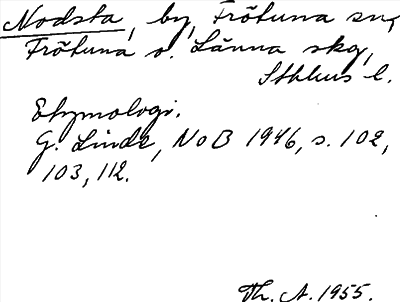 Nodsta, by, Frötuna sn,
Frötuna o. Länna skg,
Sthlms l.
Etymologi.
G. Linde, NoB 1946, s. 102,
103, 112.
Th. A. 1955.